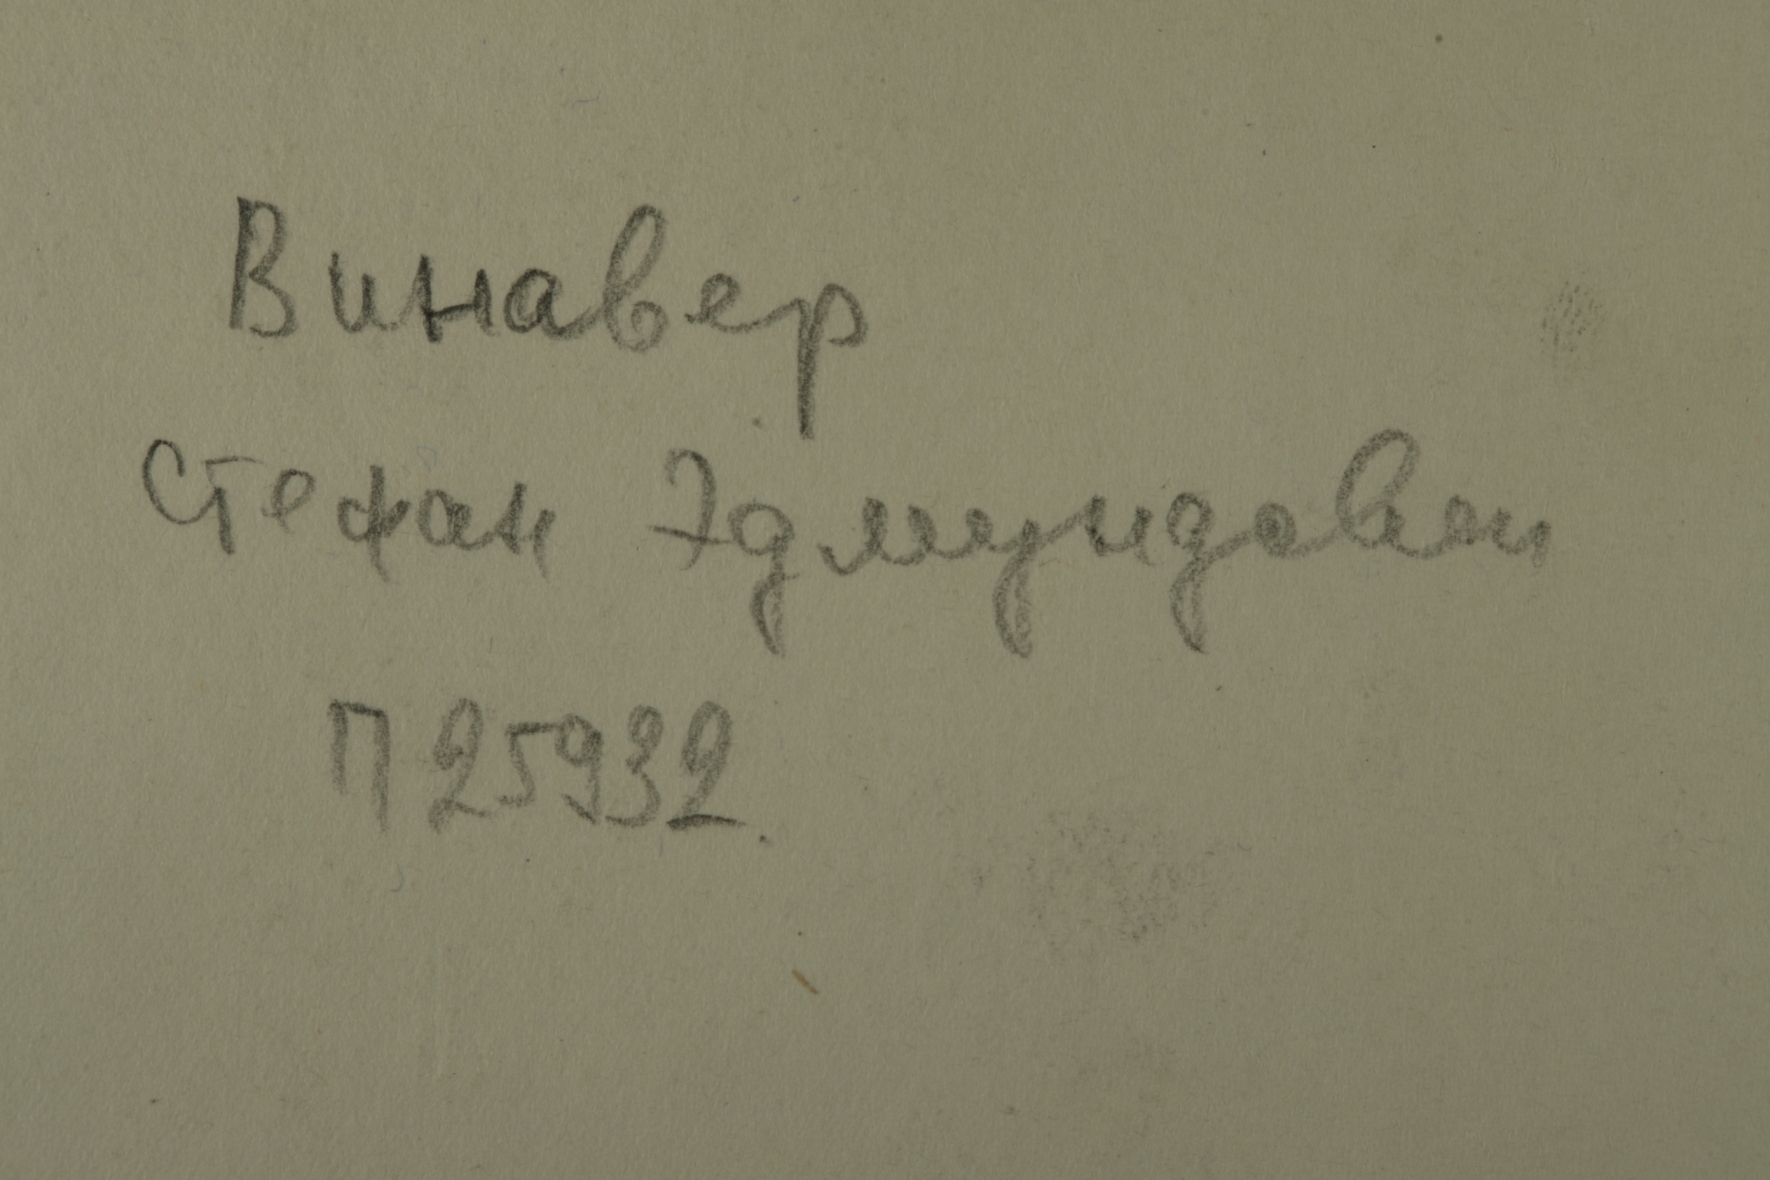 Винавер
Стефан Эдмундович
П 25932.